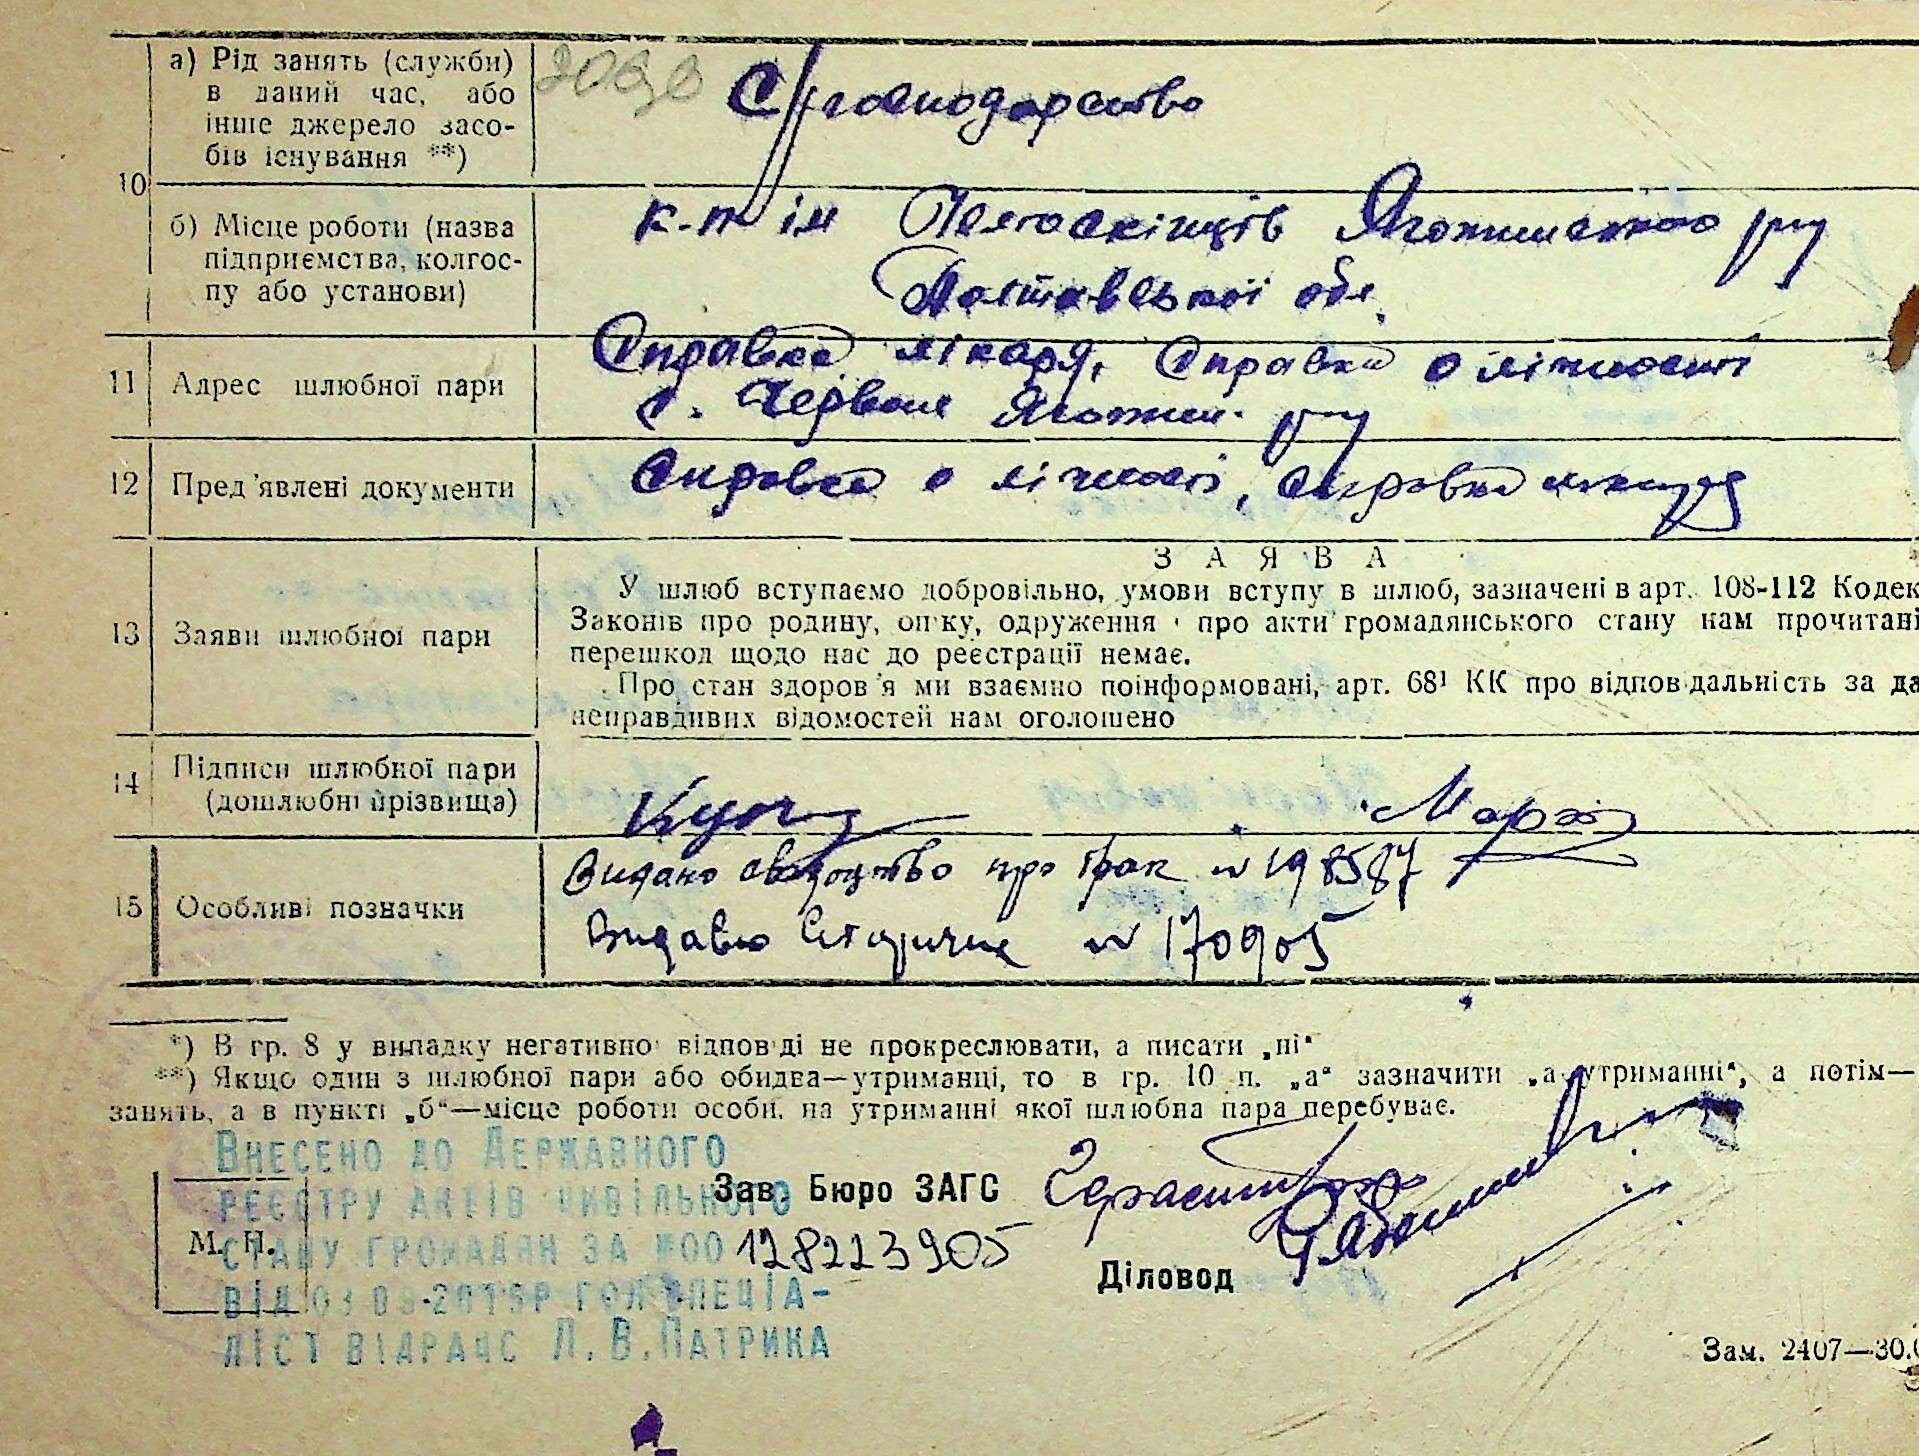 10
а) Рід занять (служби)
в даний час, або
інше джерело засо-
бів існування **)
С/господарство
б) Місце роботи (назва
підприємства, колгос-
пу або установи)
к-п ім Яготинського р-ну
Полтавської обл.
11 Адрес шлюбної пари
Справка лікаря, Справка о лічності
с. Червоне Яготин. р-ну
12 Пред'явлені документи
Справка о лічності, Справка лікаря
13 Заяви шлюбної пари
ЗАЯВА
У шлюб вступаємо добровільно, умови вступу в шлюб, зазначені в арт. 108-112 Кодек
Законів про родину, опіку, одруження і про акти громадянського стану нам прочитані
перешкод щодо нас до реєстрації немає.
Про стан здоров'я ми взаємно поінформовані, арт. 68¹ КК про відповідальність за да
неправдивих відомостей нам оголошено
14 Підписи шлюбної пари
(дошлюбні прізвища)
15 Особливі позначки
Видано свідоцтво про брак № 198587
Видано № 170905
*) В гр. 8 у випадку негативної відповіді не прокреслювати, а писати „ні“
**) Якщо один з шлюбної пари або обидва—утриманці, то в гр. 10 п. „а“ зазначити „а утриманні“, а потім—
занять, а в пункті „б“—місце роботи особи, на утриманні якої шлюбна пара перебуває.
Внесено до Державного
реєстру актів цивільного
стану громадян за №00 128223905
від Гол. спеціа-
ліст ВІДРАЦС Л.В.Патрика
М. П.
Зав. Бюро ЗАГС
Діловод
Зам. 2407—30.